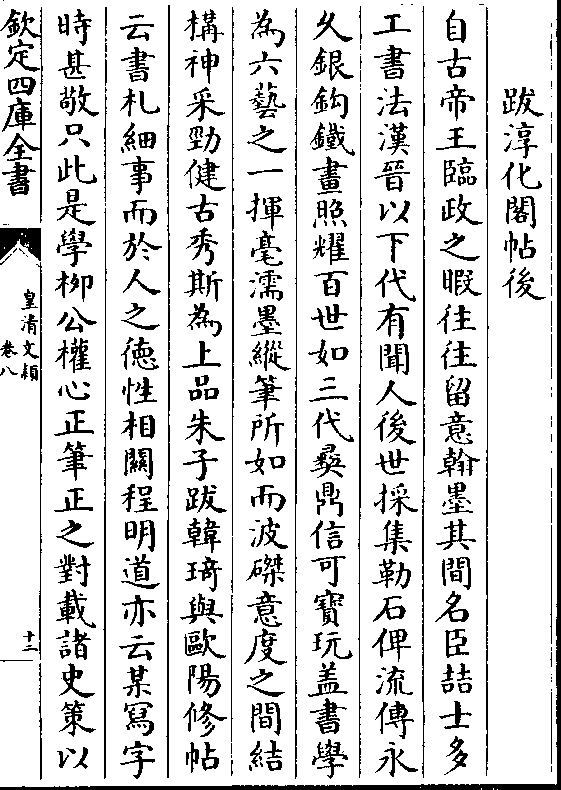 跋淳化閣帖後
自古帝王臨政之暇往往留意翰墨其間名臣喆士多
工書法漢晉以下代有聞人後世採集勒石俾流傳永
久銀鈎鐵畫照耀百世如三代彞鼎信可寳玩盖書學
為六藝之一揮毫濡墨縱筆所如而波磔意度之間結
構神采勁健古秀斯為上品朱子跋韓琦與歐陽修帖
云書札細事而於人之德性相關程明道亦云某寫字
時甚敬只此是學柳公權心正筆正之對載諸史策以
欽定四庫全書
皇清文穎
卷八
十二